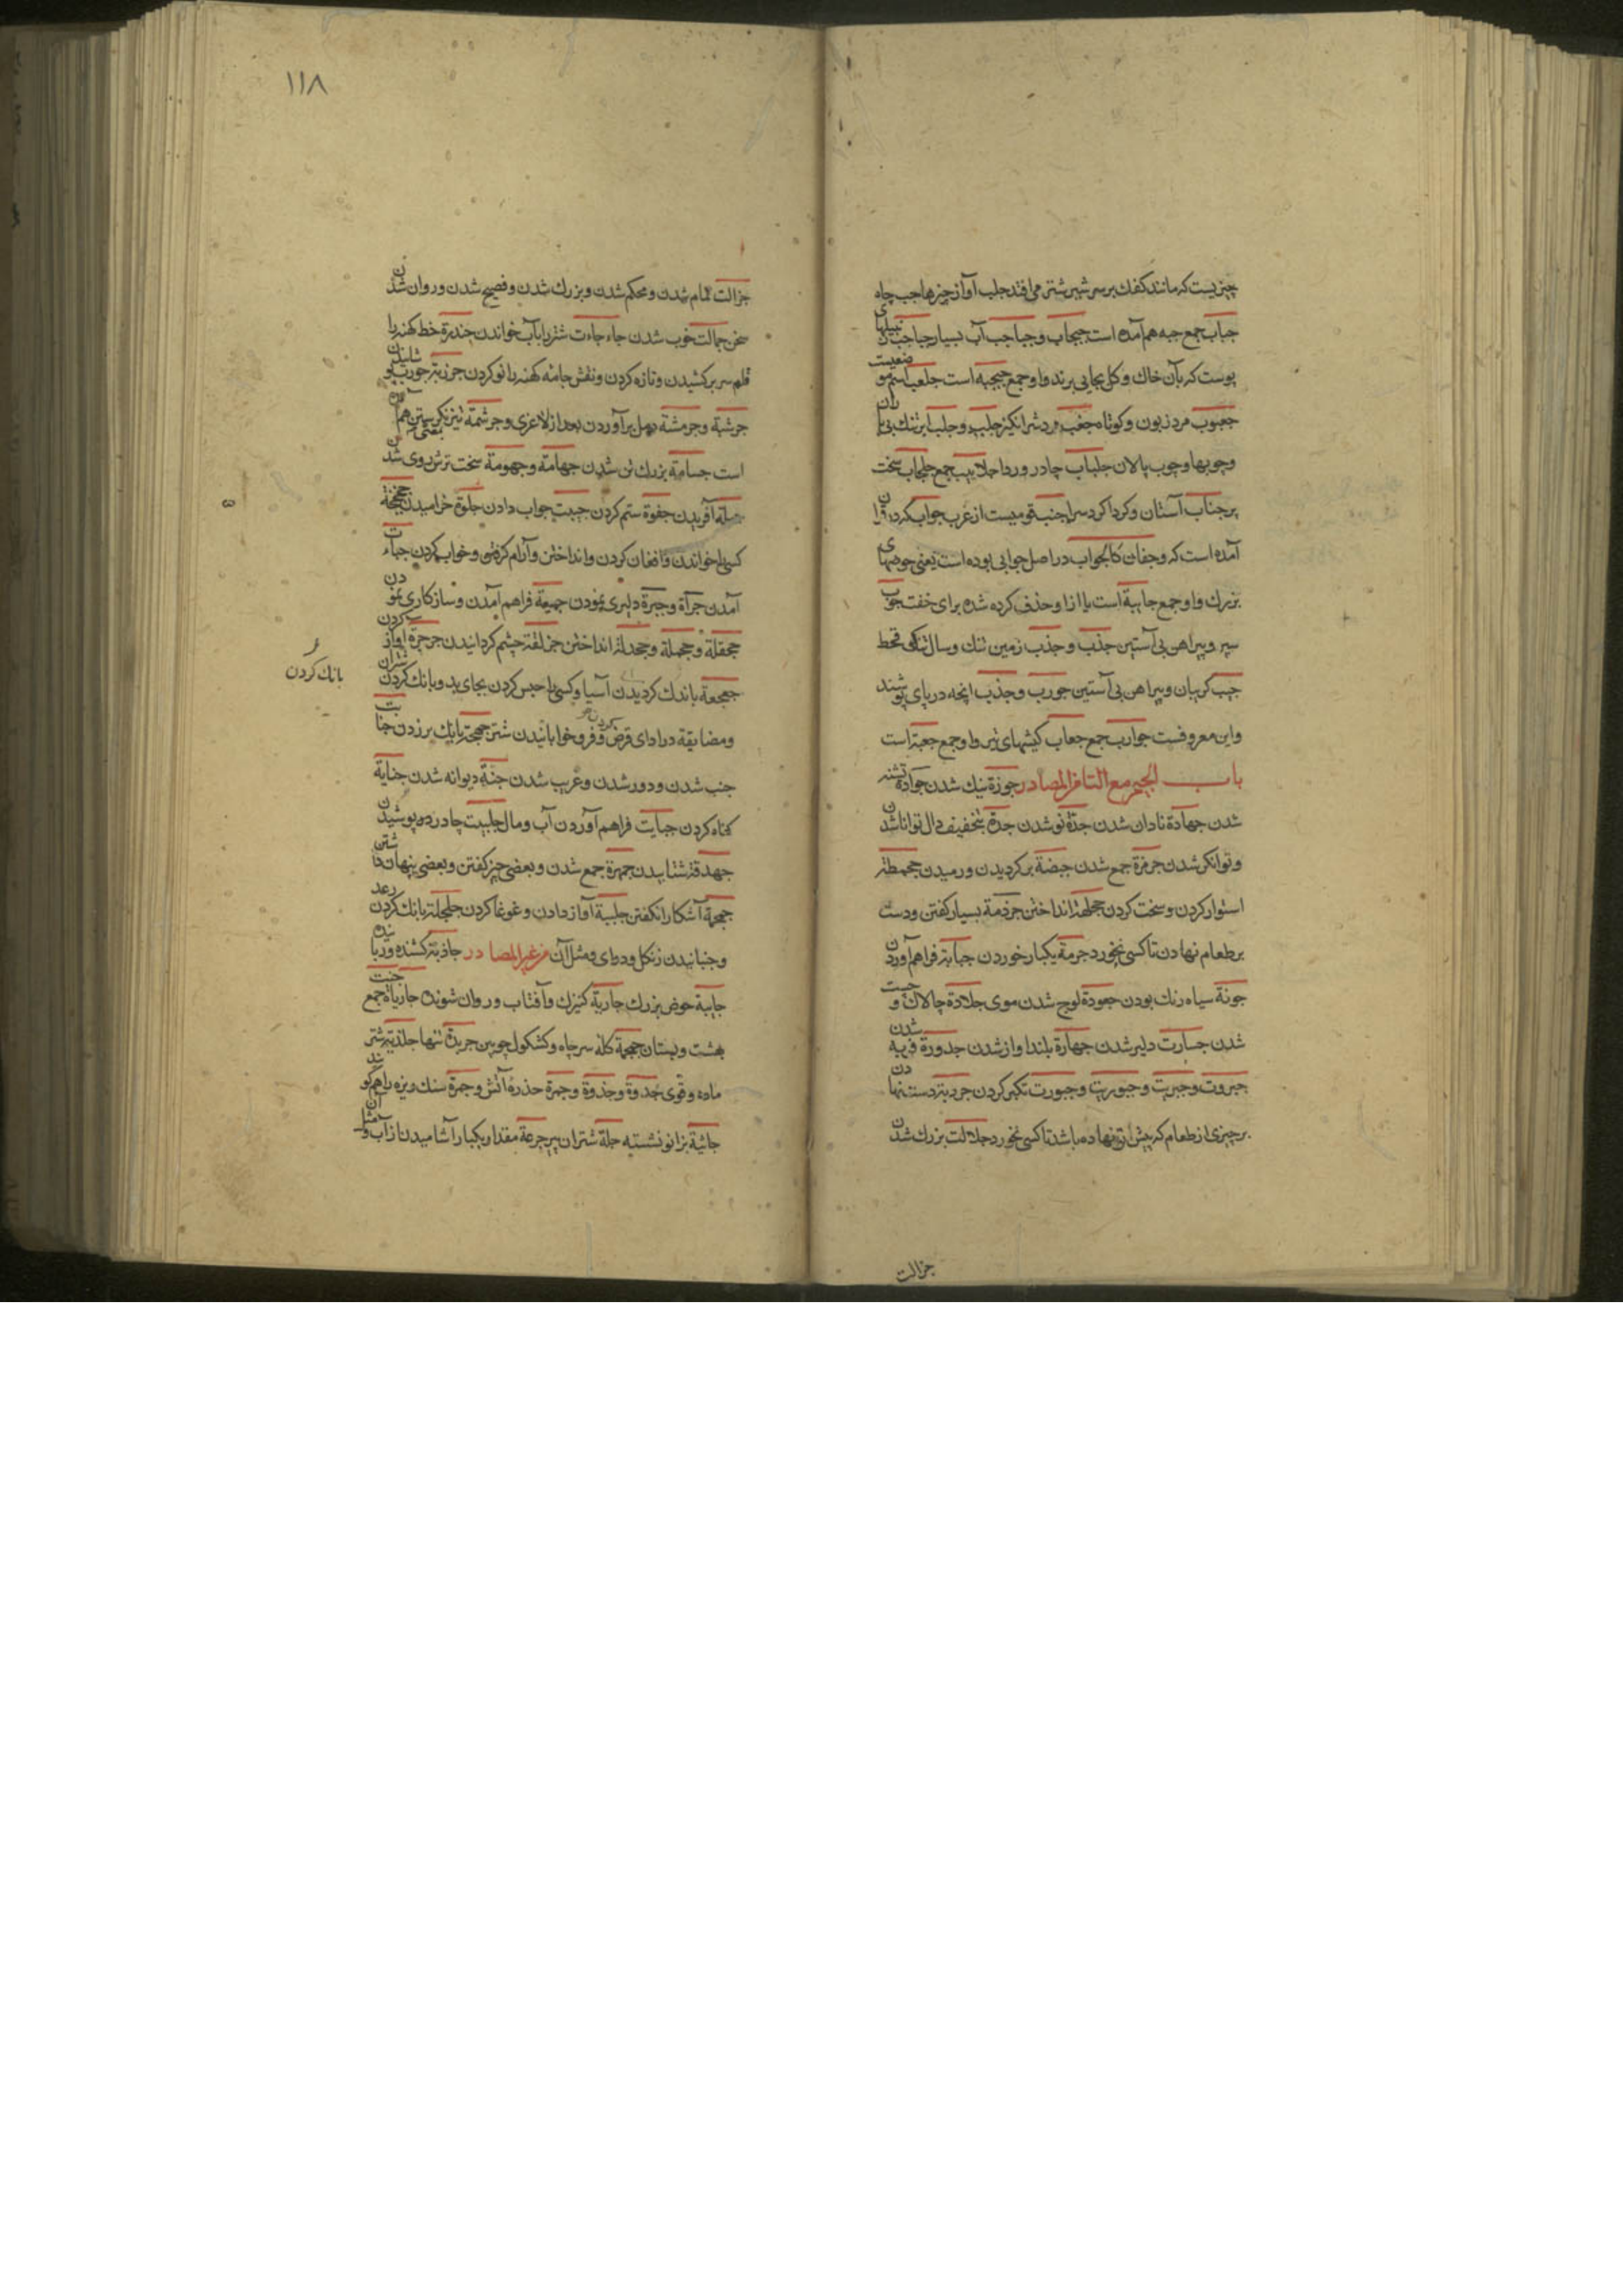 چیزیست که مانند کفک بر سر شیر شتر می افتد جلب آواز چیزها جب چاه
جباب جمع جبه هم آمده است جبجاب و جباجب آب بسیار جباجب زنبیلهای
پوست که بآن خاک و کل بجایی برند و او جمع جبجبه است جلعب اسم موضعیست
جعبوب مرد زبون و کوتاه جغب مرد شرانکیز جلب و جلب ابر تنک بی باران
و چوبها و چوب پالان جلباب چادر و ردا جلابیب جمع جلجاب سخت
پر جناب آستان و کرداکرد سرا جنب قومیست از عرب جواب کردن فرا
آمده است که وجفان کالجواب در اصل جوابی بوده است یعنی حوضهای
بزرک و او جمع جابیة است یا از او حذف کرده شده برای خفت جوب
سپر و پیراهن بی آستین جذب و جذب زمین تنک و سال تنکی قحط
جیب کریبان و پیراهن بی آستین جورب و جذب انچه در پای پوشند
و این معروفست جوارب جمع جعاب کیشهای تیر و او جمع جعبة است
باب الجیم مع التا من المصادر جوزة نیک شدن جوادة تشنه
شدن جهادة نادان شدن جدة نو شدن جدة بتخفیف دال توانا شدن
و توانکر شدن جرمزة جمع شدن جیضة برکردیدن و رمیدن جحمطة
استوار کردن و سخت کردن جحلمة انداختن جرذمة بسیار کفتن و دست
بر طعام نهادن تا کسی نخورد جرمة یکبار خوردن جبابة فراهم آوردن
جونة سیاه رنک بودن جعودة لوج شدن موی جلادة چالاک و چست
شدن جسارت دلیر شدن جهارة بلند اواز شدن جدورة فربه شدن
جبروت و جبریت و جبوریت و جبورت تکبر کردن جردبة دست نهادن
بر چیزی از طعام که پیش او نهاده باشد تا کسی نخورد جلالت بزرک شدن
جزالت
۱۱۸
جزالت تمام شدن و محکم شدن و بزرک شدن و فصیح شدن و روان شدن
سخن جمالت خوب شدن جاء جاءت شتر را بآب خواندن جندرة خط کهنه را
قلم سر بر کشیدن و تازه کردن و نقش جامه کهنه را نو کردن جرزبة جورب
جرشبة و جرمشة دمل برآوردن بعد از لاغری و جرشمة تیز نکریستن هم بمعنی آمده
است جسامة بزرک تن شدن جهامة و جهومة سخت ترش روی شدن
جبلة آفریدن جفوة ستم کردن جیبت جواب دادن جلوة خرامیدن جخجخة
کسی را خواندن و افغان کردن و انداختن و آرام کرفتن و خواب کردن جیأت
آمدن جرأة و جبرة دلیری نمودن جمیعة فراهم آمدن و سازکاری نمودن
جحفلة و جحملة و جحدلة انداختن جزلقة چشم کردانیدن جرجرة آواز کردن
جعجعة باندک کردیدن آسیا و کسی را حبس کردن بجای بد و بانک کردن شتران
بانک کردن
و مضایقة در ادای قرض کردن و فرو خوابانیدن شتر جهجهة بانک بر زدن جنابت
جنب شدن و دور شدن و غریب شدن جنة دیوانه شدن جنایة
کناه کردن جبایت فراهم آوردن آب و مال جلببت چادر در پوشیدن
جهدقة شتابیدن جمهرة جمع شدن و بعضی چیز کفتن و بعضی پنهان داشتن
جمجمة آشکارا نکفتن جلبة آواز دادن و غوغا کردن جلجلة بانک کردن رعد
و جنبانیدن زنکل و درای و مثل آن من غیر المصادر جاذبة کشنده و رباینده
جابیة حوض بزرک جاریة کنیزک و آفتاب و روان شونده جاریات جمع جنت
بهشت و بستان جمجمة کله سر چاه و کشکول چوبین جریدة تنها جلذیة شتر
ماده و قوی جذوة و جذوة و جمرة حذره آتش و جمرة سنک ریزه را هم کویند
جاثیة بزانو نشسته جلة شتران پیر جرعة مقدار یکبار آشامیدن از آب و مثل آن